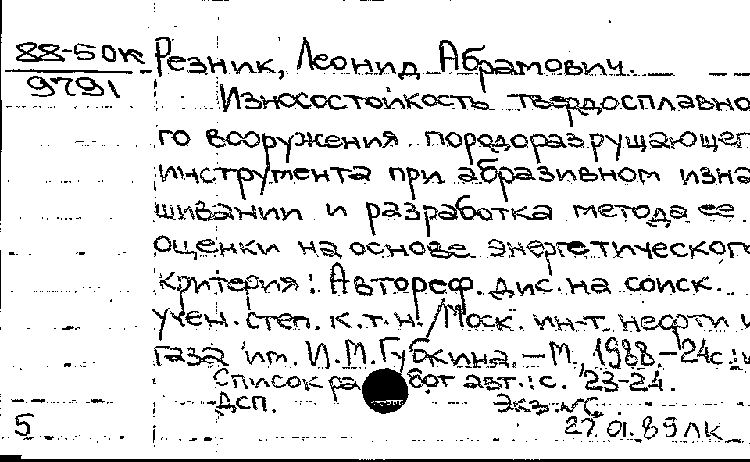 88-50к
9791
Резник, Леонид Абрамович.
Износостойкость твердосплавно
го вооружения породоразрушающег
инструмента при абразивном изна
шивании и разработка метода ее
оценки на основе энергетического
критерия: Автореф. дис. на соиск.
учен. степ. к.т.н./Моск. ин-т нефти и
газа им. И.М.Губкина. – М., 1988. – 24с.: и
Список работ авт.: с. 23-24.
Дсп. Экз. №
5 27.01.89 ЛК